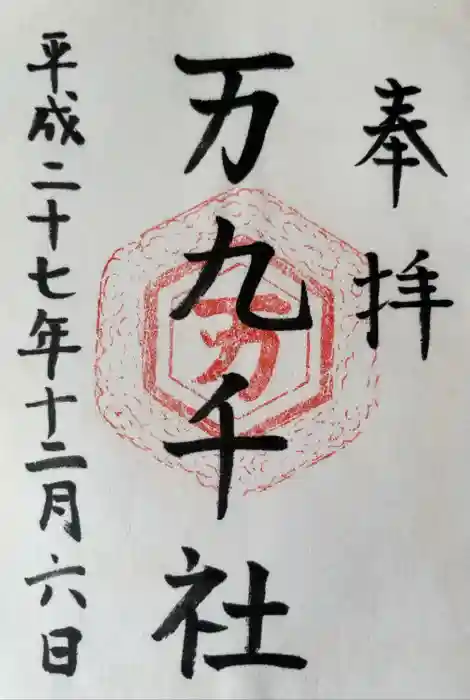 奉拝
万九千社
万
平成二十七年十二月六日